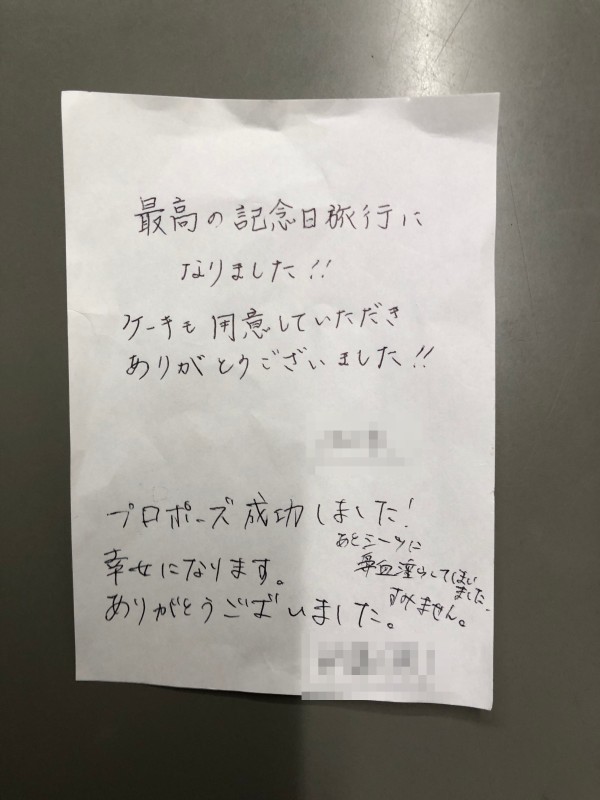 最高の記念日旅行に
なりました!!
ケーキも用意していただき
ありがとうございました!!
プロポーズ成功しました!
幸せになります。
ありがとうございました。
あとシーツに
鼻血滲らしてしまい
ました
すみません。